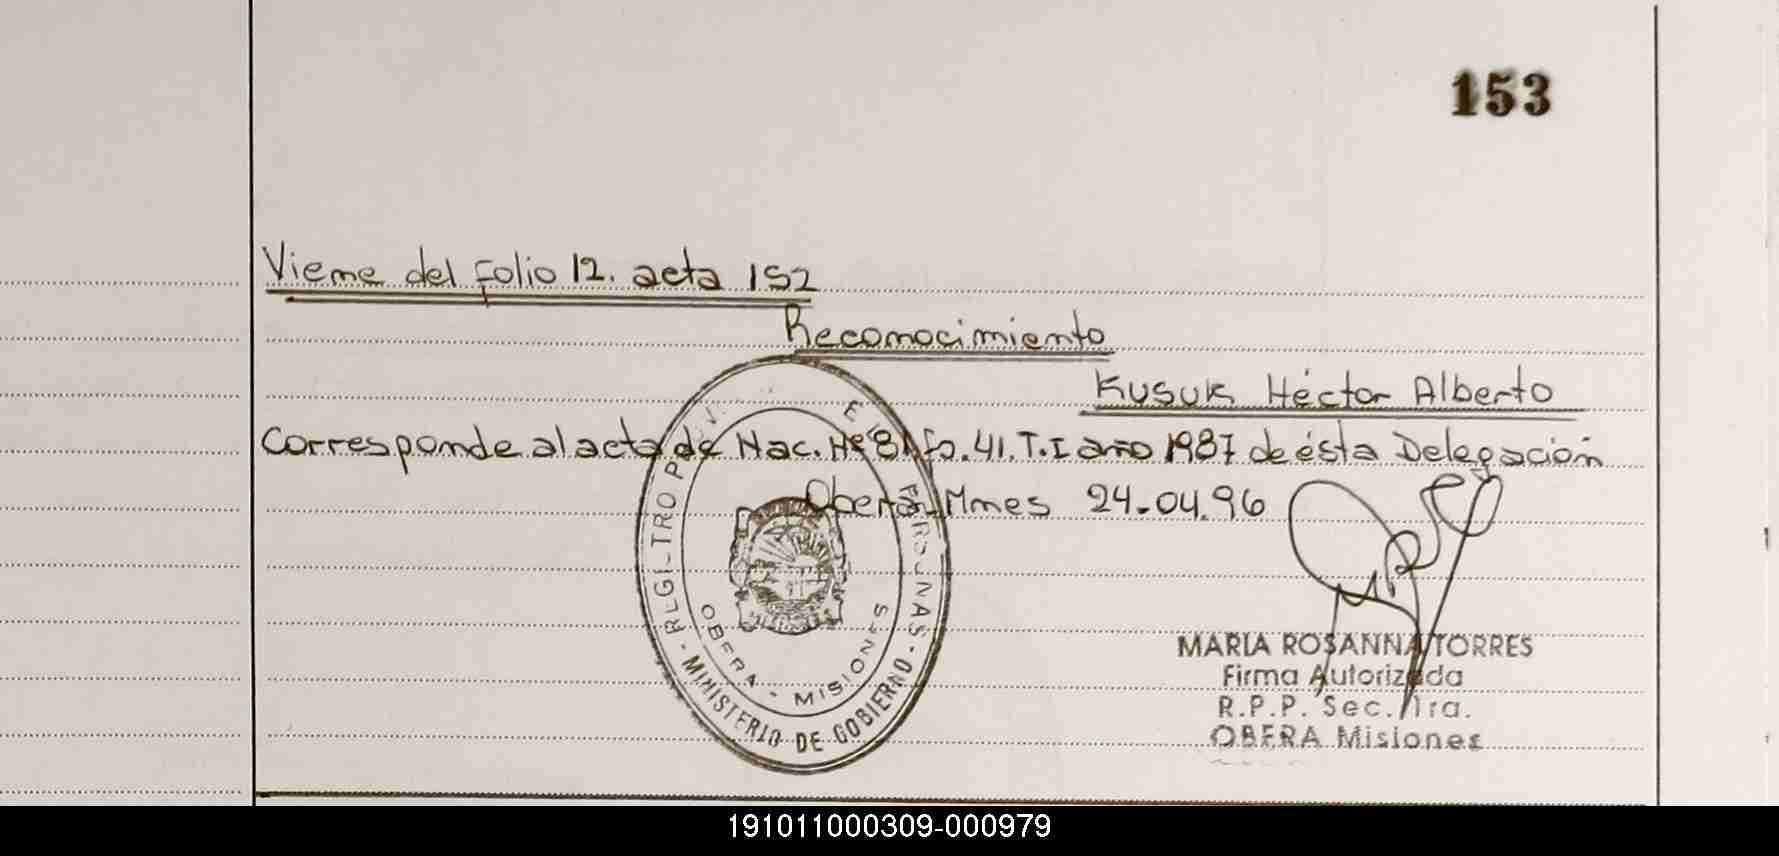 153
Viene del Folio 12. acta 152
Reconocimiento
Kusuk Héctor Alberto
Corresponde al acta de Nac. Nº 81 fo. 41. T.I año 1987 de ésta Delegación
Oberá Mnes 24-04.96
REGISTRO PROV DE PERSONAS
MINISTERIO DE GOBIERNO
OBERA - MISIONES
MARIA ROSANNA TORRES
Firma Autorizada
R.P.P. Sec. 1ra.
OBERA Misiones
191011000309-000979